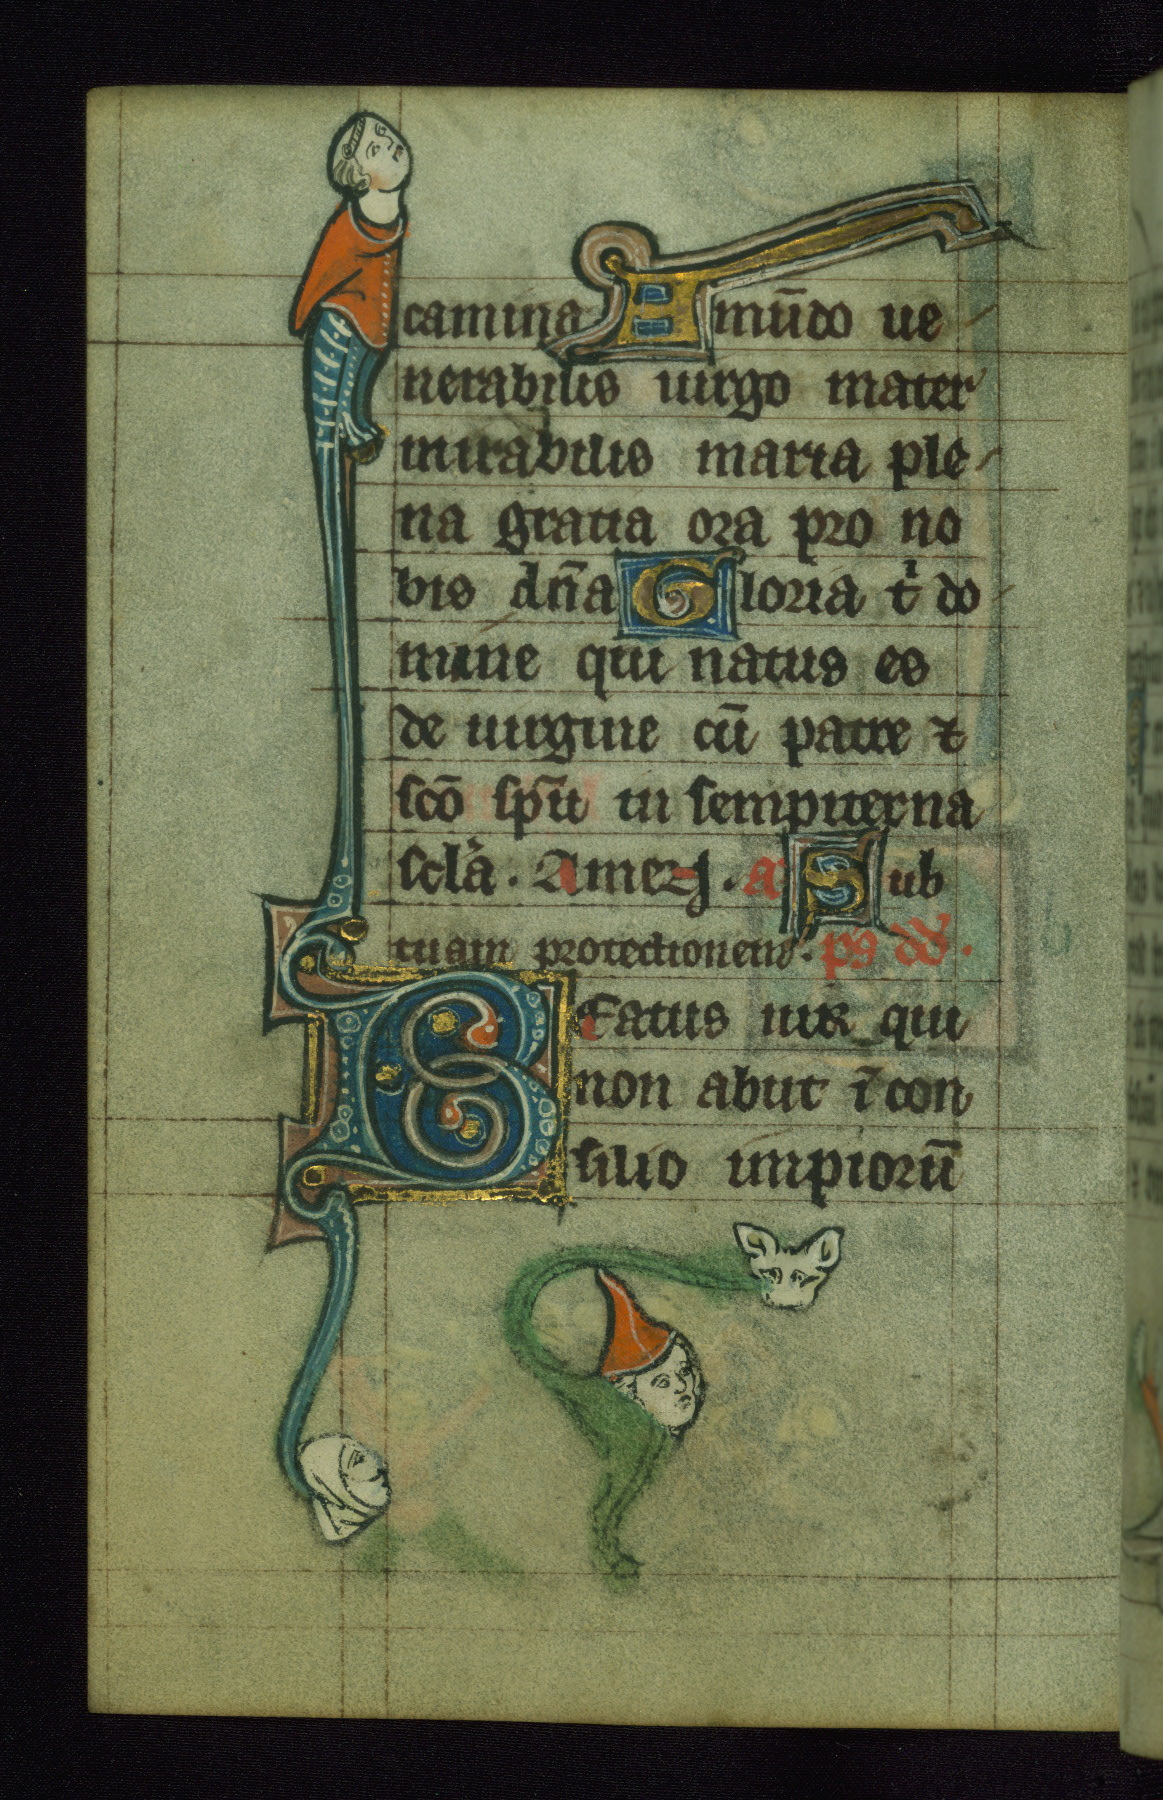 camina Emūdo ue
nerabilis uirgo mater
mirabilis maria ple
na gratia ora pro no
bis dn̄a Gloria tⁱ do
mine qui natus es
de uirgine cū patre ⁊
sc̄o sp̄u in sempiterna
scl̄a. Amen. a Sub
tuam protectionem. ps dd.
Beatus uir qui
non abiit ī con
silio impiorū